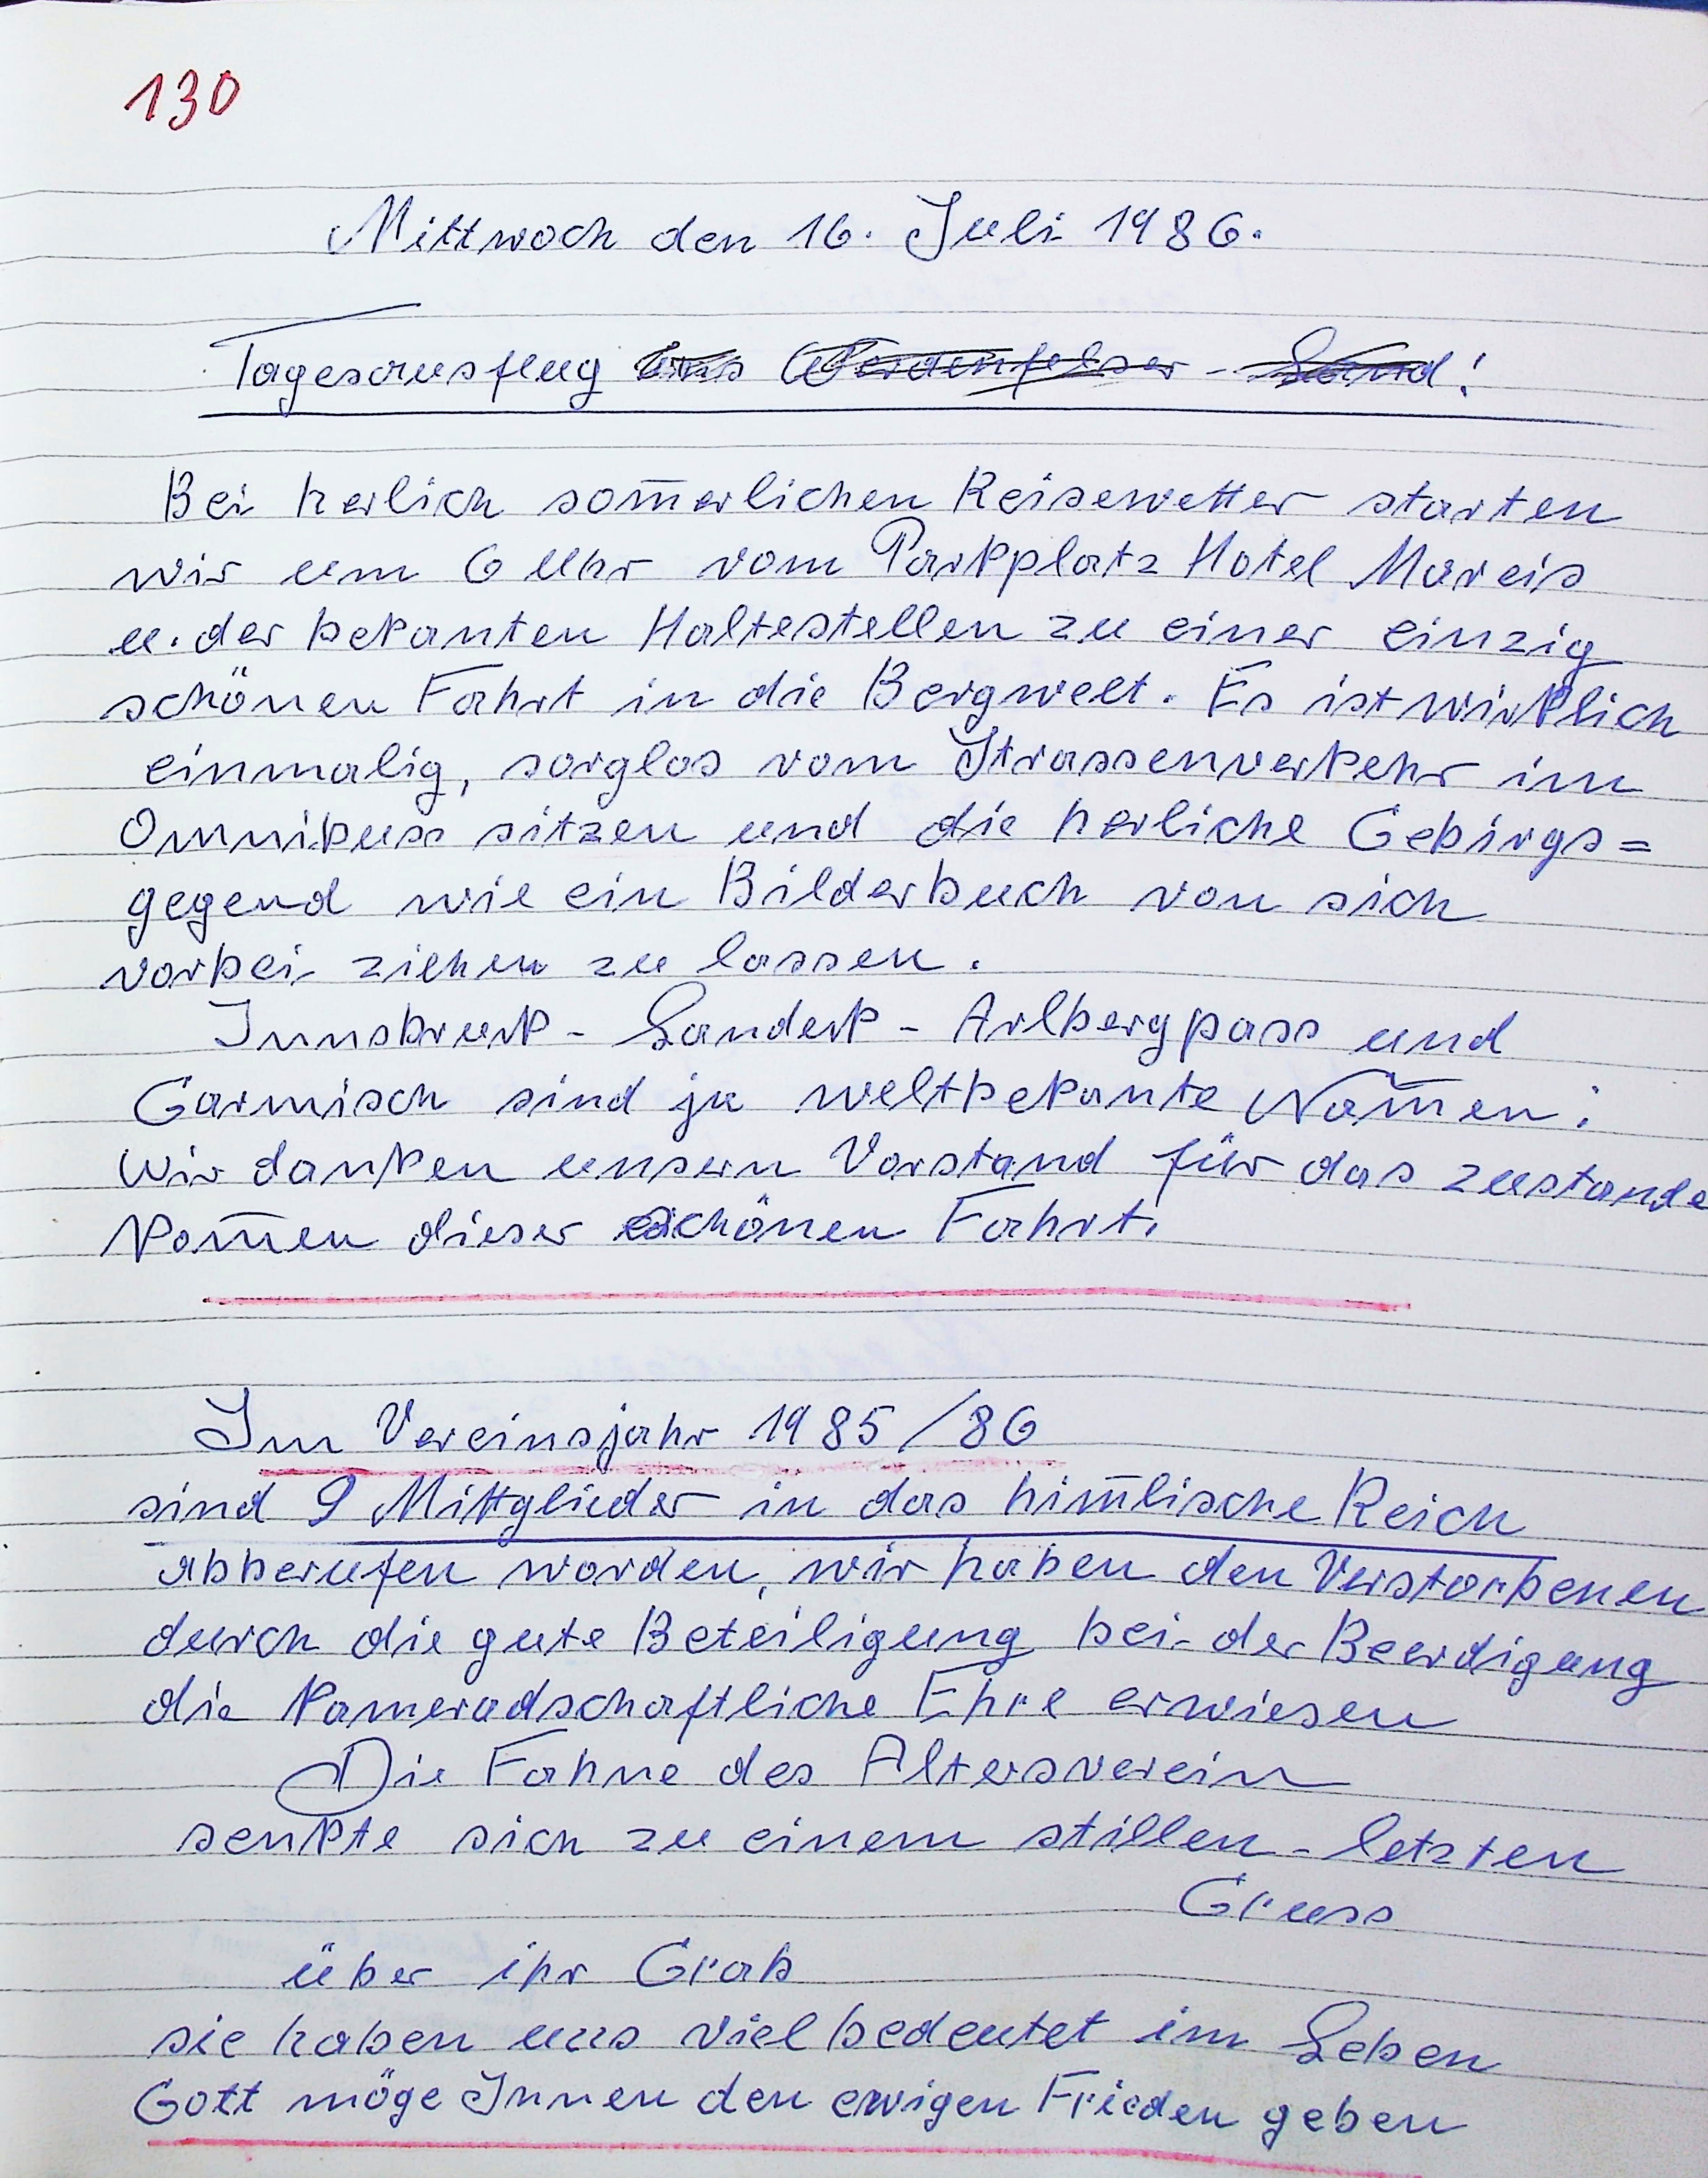 130
Mittwoch den 16. Juli 1986.
Tagesausflug ins Werdenfelser - Land!
Bei herlich som̅erlichen Reisewetter starten
wir um 6 Uhr vom Parkplatz Hotel Mareis
u. der bekanten Haltestellen zu einer einzig
schönen Fahrt in die Bergwelt. Es ist wirklich
einmalig, sorglos vom Strassenverkehr im
Omnibuss sitzen und die herliche Gebirgs=
gegend wie ein Bilderbuch von sich
vorbei ziehen zu lassen.
Innsbruck - Landek - Arlbergpass und
Garmisch sind ja weltbekante Nam̅en:
Wir danken unsern Vorstand für das zustande
kom̅en dieser schönen Fahrt.
Im Vereinsjahr 1985/86
sind 9 Mittglieder in das him̅lische Reich
abberufen worden, wir haben den Verstorbenen
durch die gute Beteiligung bei der Beerdigung
die kameradschaftliche Ehre erwiesen
Die Fahne des Altersverein
senkte sich zu einem stillen - letzten
Gruss
über ihr Grab
sie haben uns viel bedeutet im Leben
Gott möge Innen den ewigen Frieden geben